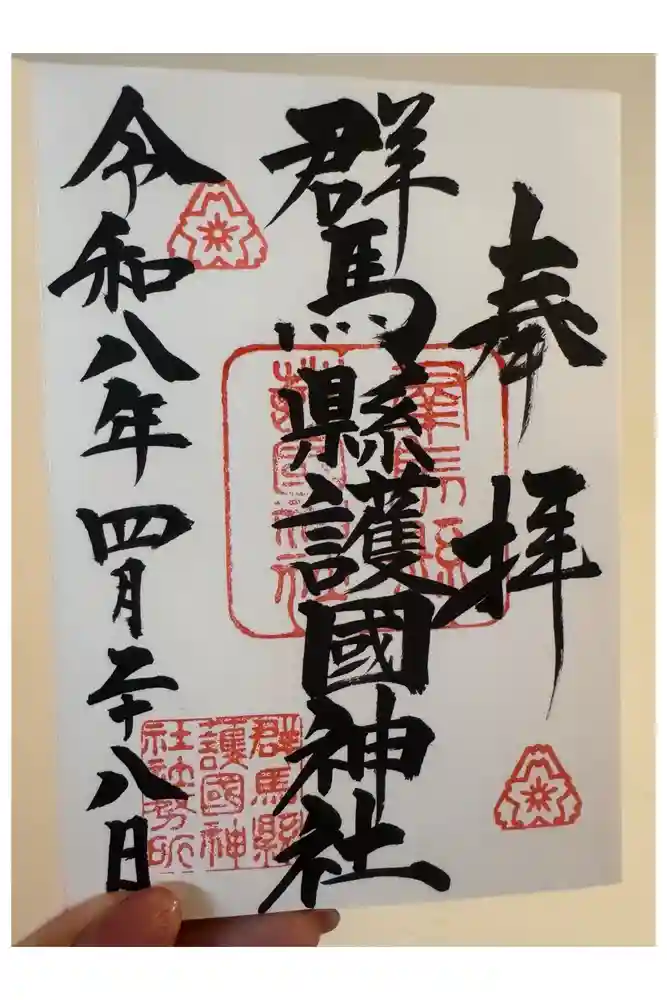 奉拝
群馬縣護國神社
令和八年四月二十八日
群馬縣
護國神社
群馬縣
護國神
社社務所